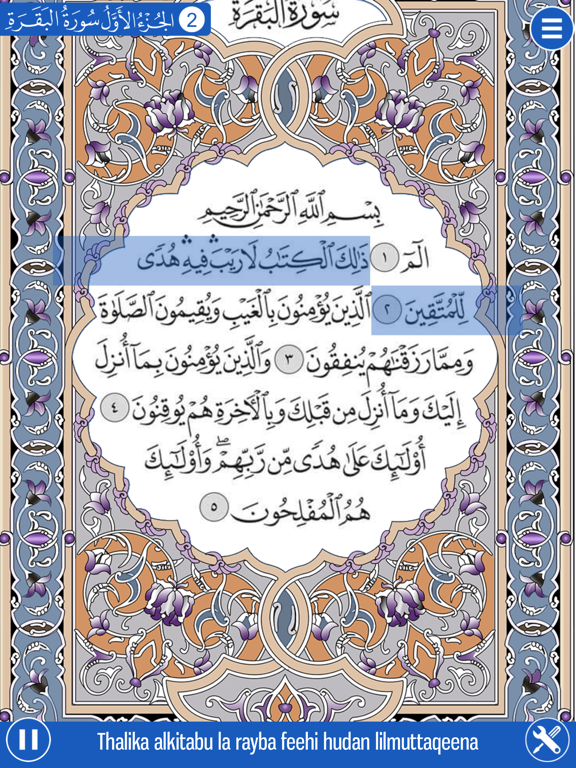 الجُزءُ الأَوَّلُ سُورَةُ البَقَرَةِ 2
سُورَةُ الْبَقَرَةِ
بِسْمِ ٱللَّهِ ٱلرَّحْمَٰنِ ٱلرَّحِيمِ
الٓمٓ ١ ذَٰلِكَ ٱلْكِتَٰبُ لَا رَيْبَ ۛ فِيهِ ۛ هُدًى
لِّلْمُتَّقِينَ ٢ ٱلَّذِينَ يُؤْمِنُونَ بِٱلْغَيْبِ وَيُقِيمُونَ ٱلصَّلَوٰةَ
وَمِمَّا رَزَقْنَٰهُمْ يُنفِقُونَ ٣ وَٱلَّذِينَ يُؤْمِنُونَ بِمَآ أُنزِلَ
إِلَيْكَ وَمَآ أُنزِلَ مِن قَبْلِكَ وَبِٱلْءَاخِرَةِ هُمْ يُوقِنُونَ ٤
أُو۟لَٰٓئِكَ عَلَىٰ هُدًى مِّن رَّبِّهِمْ ۖ وَأُو۟لَٰٓئِكَ
هُمُ ٱلْمُفْلِحُونَ ٥
Thalika alkitabu la rayba feehi hudan lilmuttaqeena